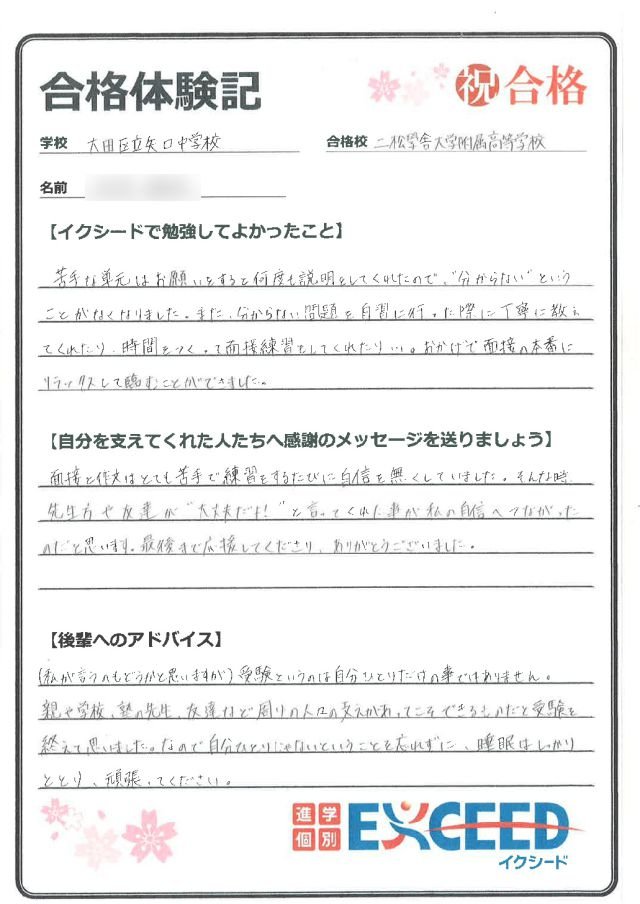 合格体験記
祝 合格
学校 大田区立矢口中学校
合格校 二松學舎大学附属高等学校
名前
【イクシードで勉強してよかったこと】
苦手な単元はお願いをすると何度も説明をしてくれたので、"分からない"という
ことがなくなりました。また、分からない問題を自習に行った際に丁寧に教え
てくれたり、時間をつくって面接練習をしてくれたり…。おかげで面接の本番に
リラックスして臨むことができました。
【自分を支えてくれた人たちへ感謝のメッセージを送りましょう】
面接と作文はとても苦手で練習をするたびに自信を無くしていました。そんな時、
先生方や友達が"大丈夫だよ!"と言ってくれた事が私の自信へつながった
のだと思います。最後まで応援してくださり、ありがとうございました。
【後輩へのアドバイス】
(私が言うのもどうかと思いますが)受験というのは自分ひとりだけの事ではありません。
親や学校、塾の先生、友達など周りの人の支えがあってこそできるものだと受験を
終えて思いました。なので自分ひとりじゃないということを忘れずに、睡眠はしっかり
ととり、頑張ってください。
進学
個別
EXCEED
イクシード